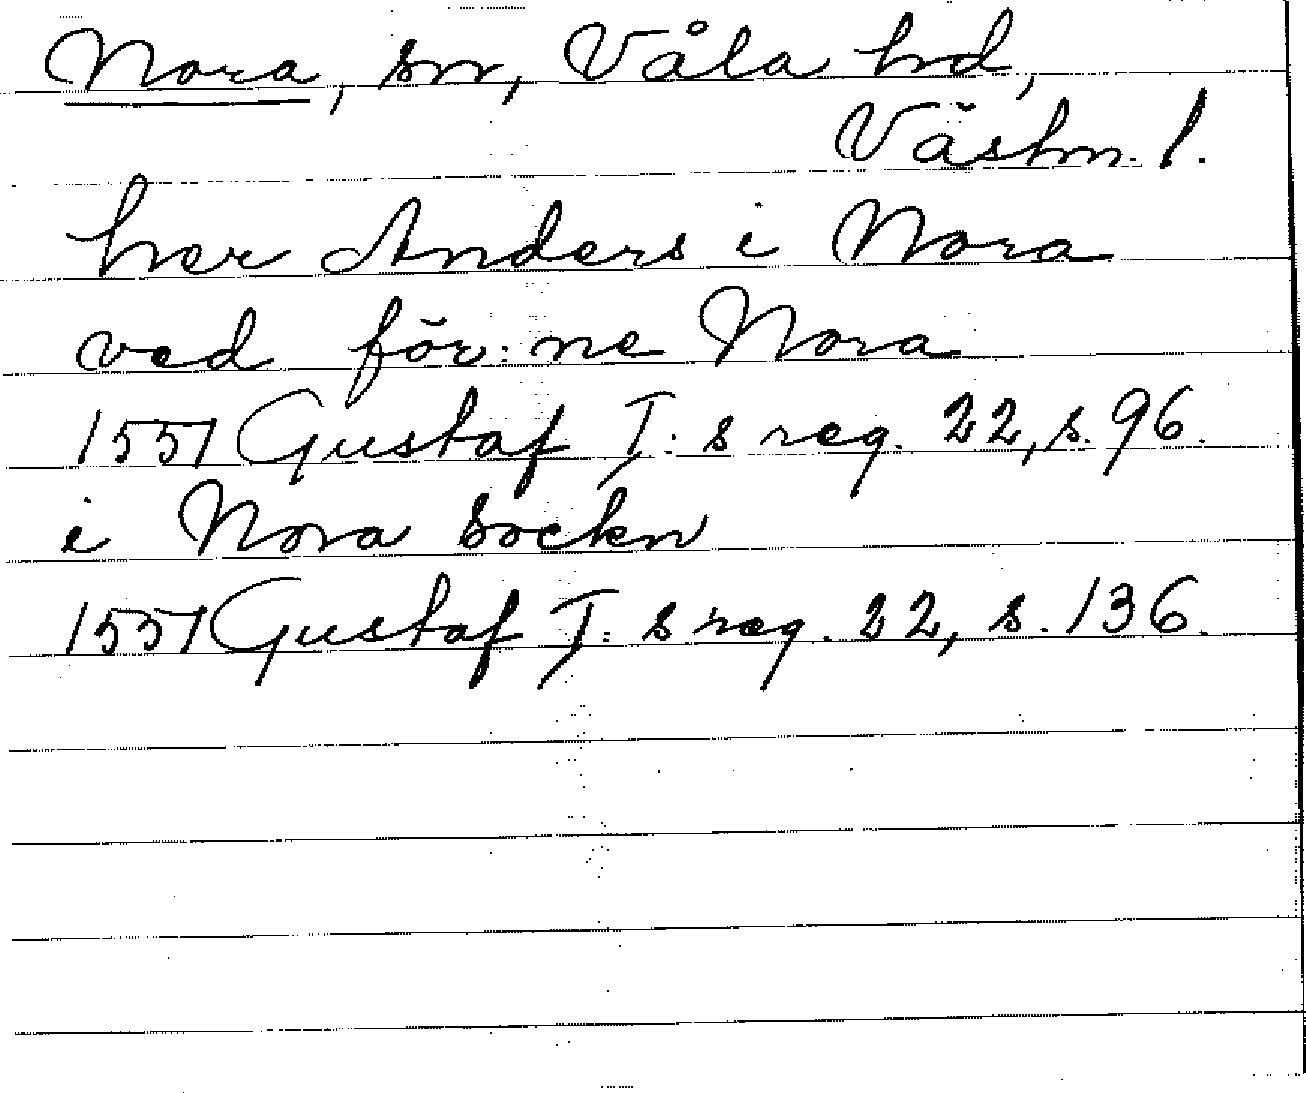 Nora, sn, Våla hd,
Västm. l.
her Anders i Nora
ved för:ne Nora
1551 Gustaf I:s reg. 22, s. 96.
i Nora Sockn
1551 Gustaf I:s reg. 22, s. 136.